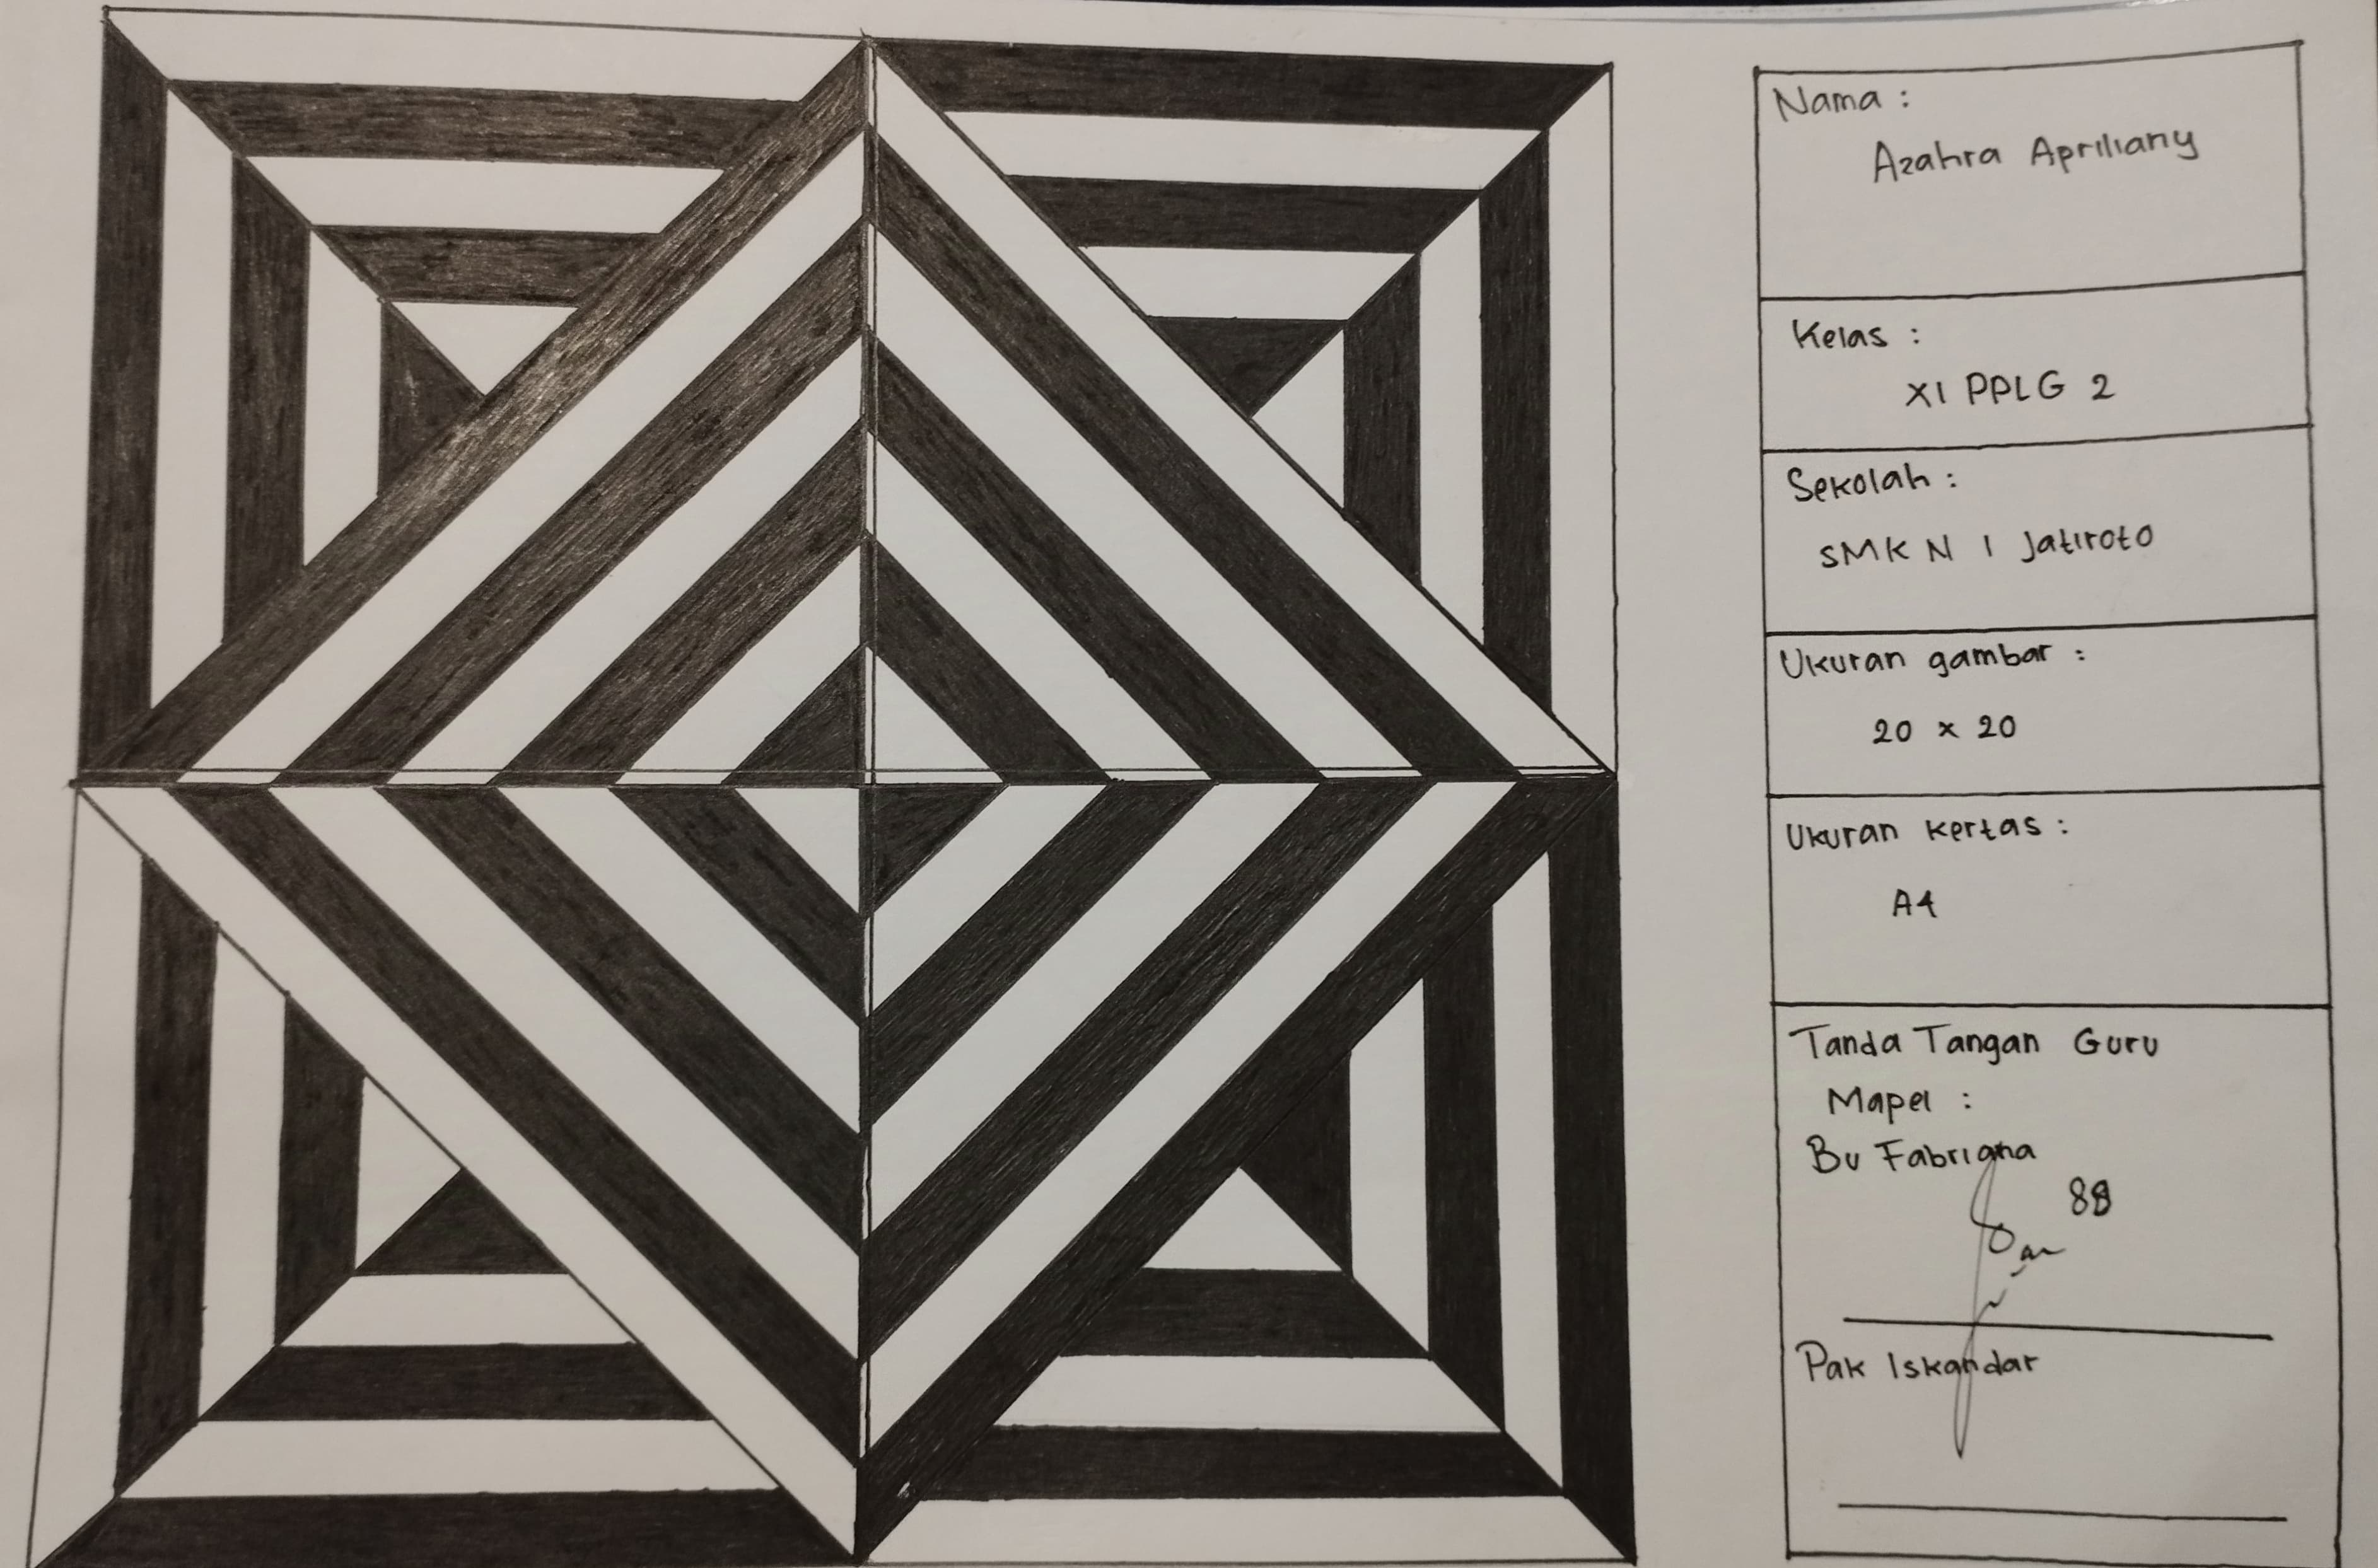 Nama :
Azahra Apriliany
Kelas :
XI PPLG 2
Sekolah :
SMK N 1 Jatiroto
Ukuran gambar :
20 x 20
Ukuran kertas :
A4
Tanda Tangan Guru
Mapel :
Bu Fabriana
88
Pak Iskandar